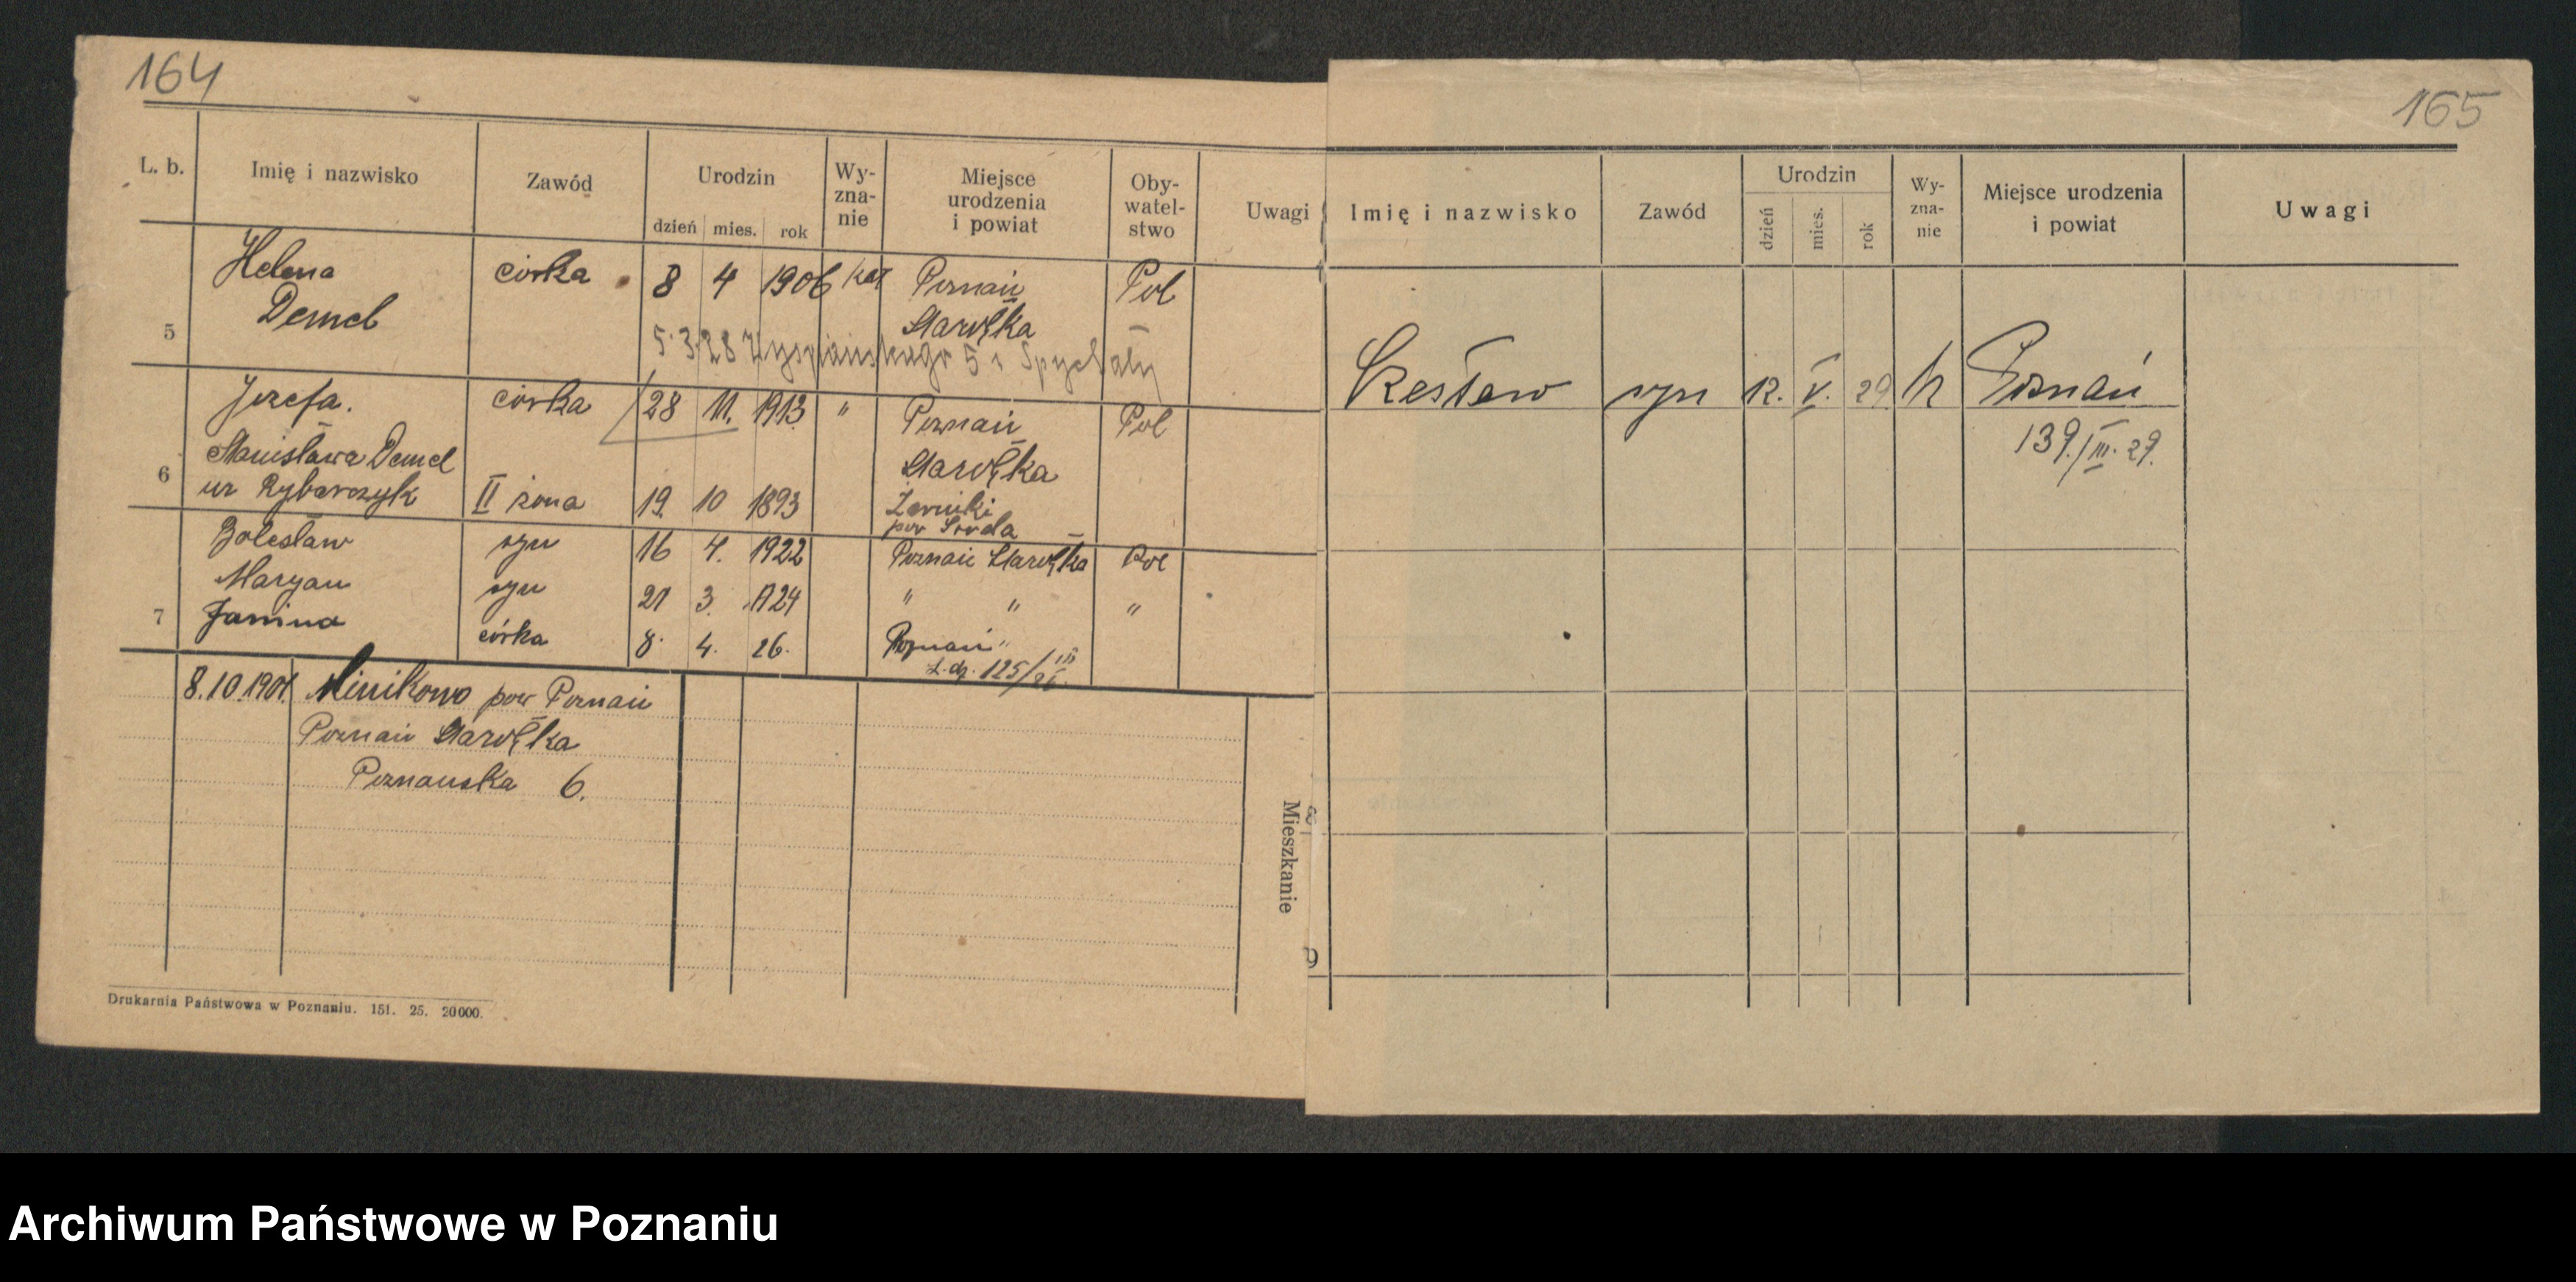 164
165
L. b. Imię i nazwisko Zawód Urodzin dzień mies. rok Wy-zna-nie Miejsce urodzenia i powiat Oby-watel-stwo Uwagi
Helena córka 8 4 1906 kat Poznań Pol
5 Demel Starołęka
5.3.28 Wyspiańskiego 5 Spychały
Jozefa. córka 28 11. 1913 " Poznań Pol
Starołęka
6 Stanisława Demel
ur Rybarczyk II żona 19. 10 1893 Żerniki
pow Środa
Bolesław syn 16 4. 1922 Poznań Starołęka Pol
Maryan syn 21 3. 1924 " " "
7 Janina córka 8. 4. 26. Poznań "
L. dz. 125/III 26.
8.10.1901. Minikowo pow Poznań
Poznań Starołęka
Poznańska 6.
Mieszkanie
Drukarnia Państwowa w Poznaniu. 151. 25. 20000.
Imię i nazwisko Zawód Urodzin dzień mies. rok Wy-zna-nie Miejsce urodzenia i powiat Uwagi
Czesław syn 12. V. 29. k Poznań
139/III. 29.
8
9
Archiwum Państwowe w Poznaniu